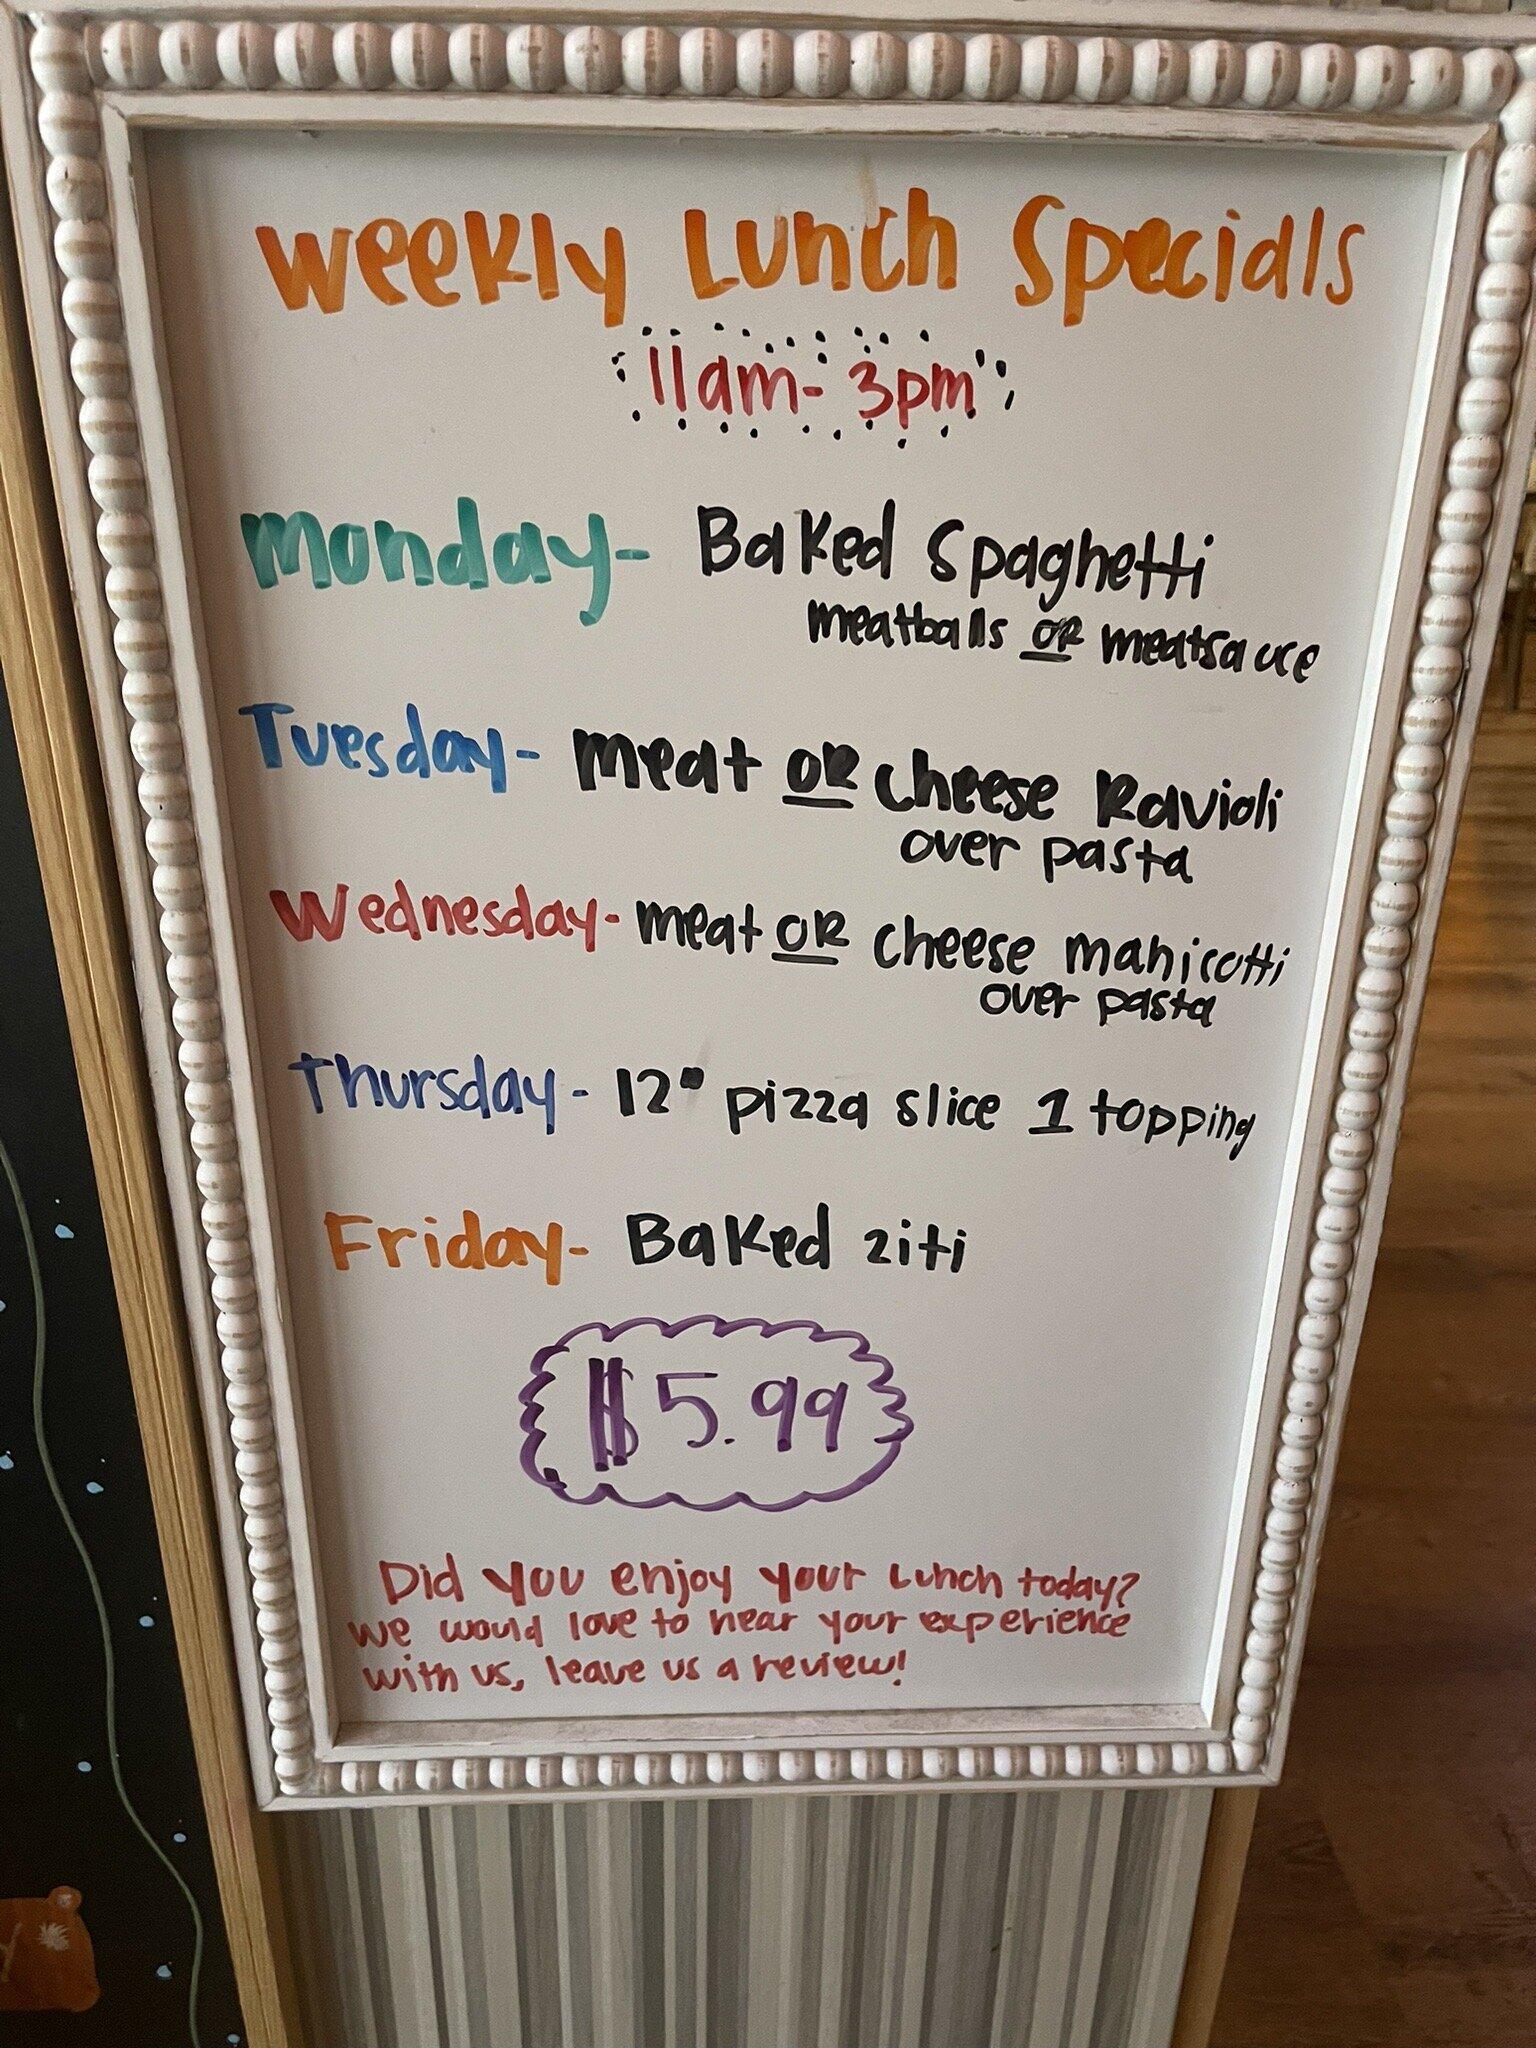 Weekly Lunch Specials
11am- 3pm
Monday- Baked Spaghetti
meatballs OR meatsauce
Tuesday- meat OR cheese Ravioli
over pasta
Wednesday- meat OR cheese manicotti
over pasta
Thursday- 12" pizza slice 1 topping
Friday- Baked ziti
$5.99
Did you enjoy your Lunch today?
We would love to hear your experience
with us, leave us a review!